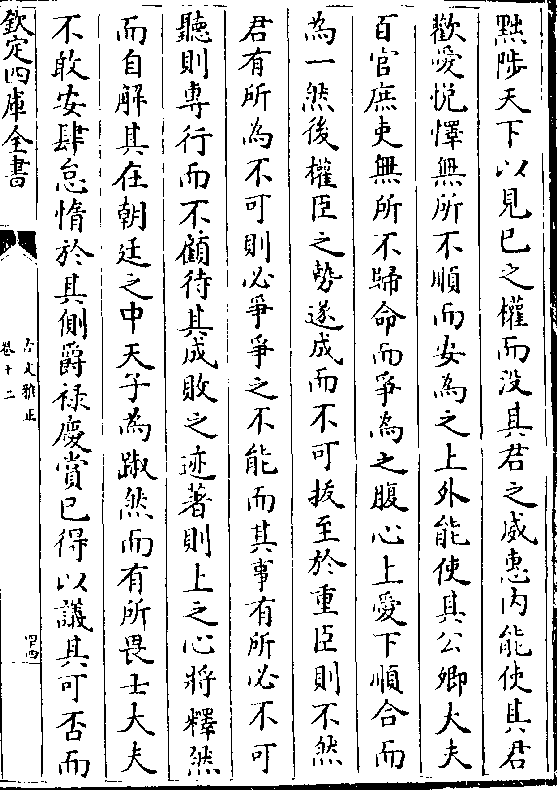 黜陟天下以見已之權而没其君之威惠内能使其君
歡愛悦懌無所不順而安為之上外能使其公卿大夫
百官庶吏無所不歸命而爭為之腹心上愛下順合而
為一然後權臣之勢遂成而不可拔至於重臣則不然
君有所為不可則必爭爭之不能而其事有所必不可
聽則專行而不顧待其成敗之迹著則上之心將釋然
而自解其在朝廷之中天子為踧然而有所畏士大夫
不敢安肆怠惰於其側爵禄慶賞已得以議其可否而
欽定四庫全書
古文雅正
卷十二
四四